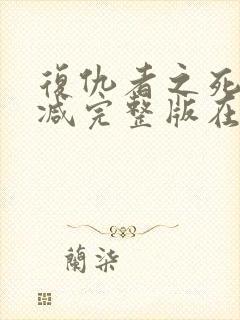 復仇者之死
减完整版在
蘭柒